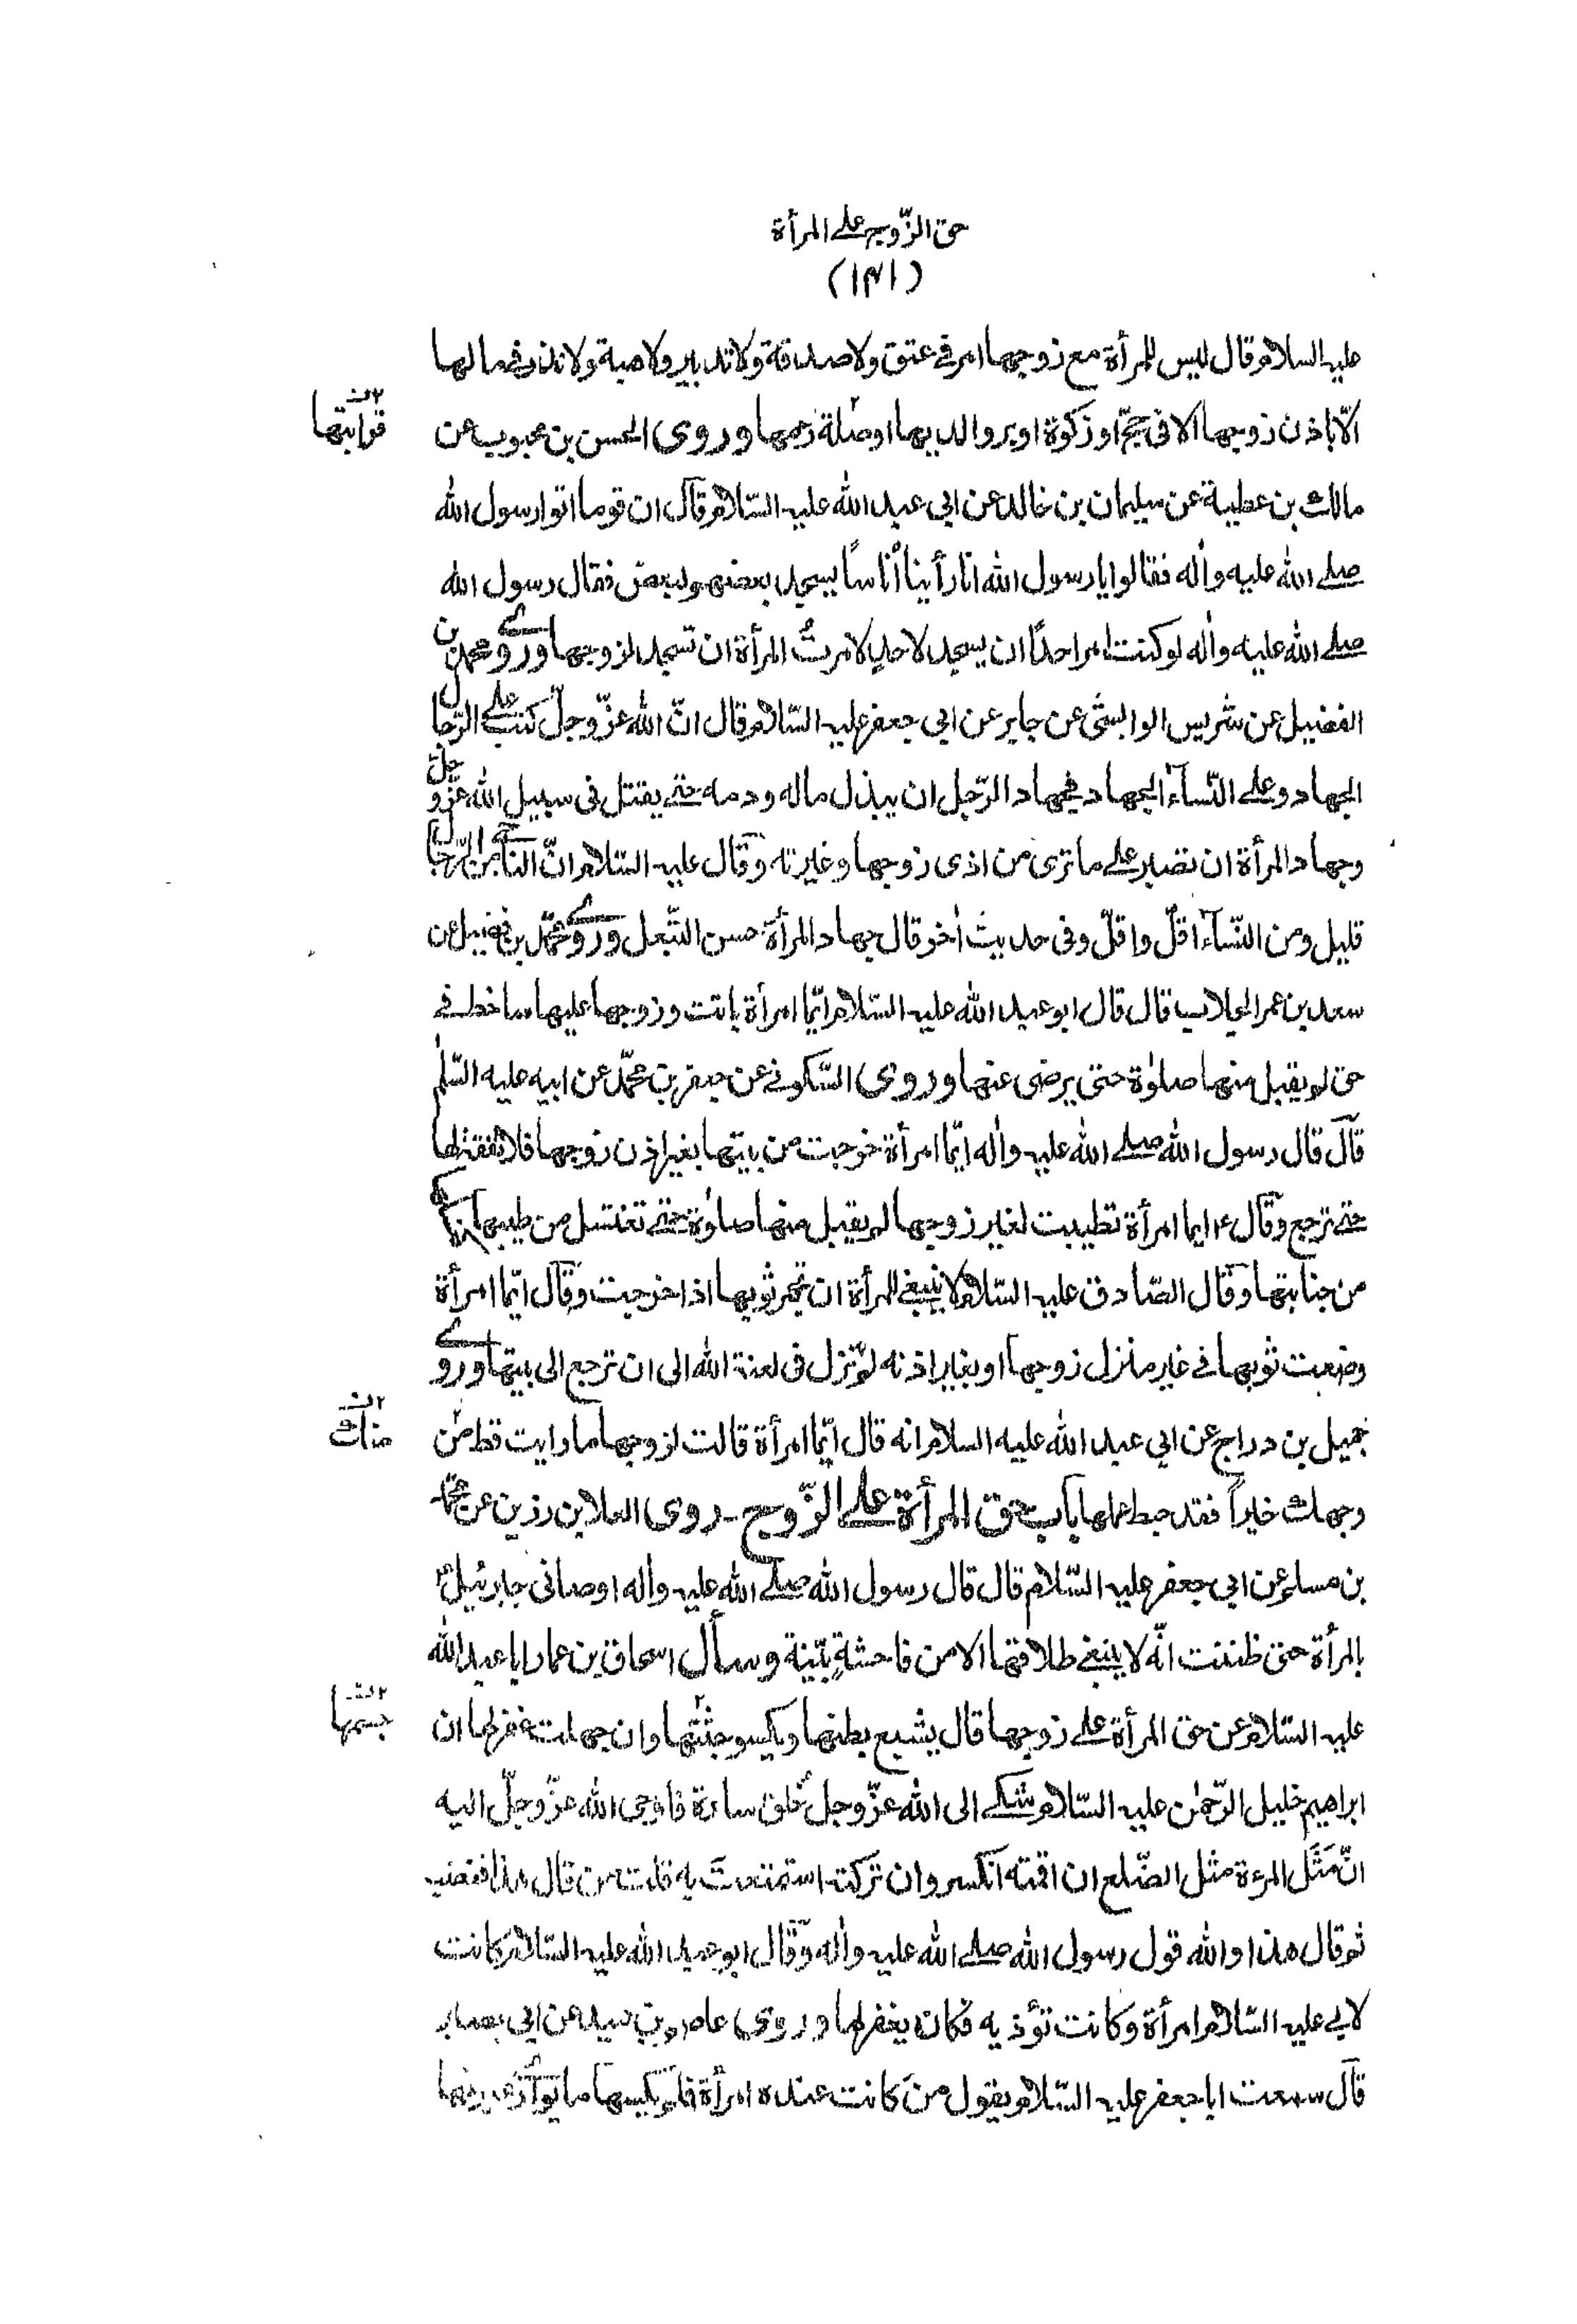 حق الزّوج على المرأة
(١٤١)
عليه السلام قال ليس للمرأة مع زوجها امر في عتق ولا صدقة ولا تدبير ولا هبة ولا نذر في مالها
الّا باذن زوجها الا فى حجّ او زكوة او بر والديها او صلة رحمها وروى الحسن بن محبوب عن
قرابتها
مالك بن عطية عن سليمان بن خالد عن ابي عبد الله عليه السّلام قال ان قوما اتوا رسول الله
صلى الله عليه واٰله فقالوا يا رسول الله انا رأينا أناسًا يسجد بعضهم لبعض فقال رسول الله
صلى الله عليه واٰله لو كنت امر احدًا ان يسجد لاحد لامرتُ المرأة ان تسجد لزوجها وروى محمد بن
الفضيل عن شريس الوابشى عن جابر عن ابي جعفر عليه السّلام قال انّ الله عزّ وجلّ كتب على الرّجال
الجهاد وعلى النّسآء الجهاد فجهاد الرّجل ان يبذل ماله ودمه حتى يقتل فى سبيل الله عزّ وجلّ
وجهاد المرأة ان تصبر على ما ترى من اذى زوجها وغيرته وقال عليه السّلام انّ الناجى من الرّجال
قليل ومن النّسآء اقلّ واقلّ وفى حديث اٰخر قال جهاد المرأة حسن التّبعل وروى محمّد بن فضيل عن
سعد بن عمر الجلاب قال قال ابو عبد الله عليه السّلام ايّما امرأة باتت وزوجها عليها ساخط في
حق لم يقبل منها صلوٰة حتى يرضى عنها وروى السّكوني عن جعفر بن محمّد عن ابيه عليه السّلٰم
قال قال رسول الله صلى الله عليه واٰله ايّما امرأة خرجت من بيتها بغير اذن زوجها فلا نفقة لها
حتى ترجع وقال ع ايما امرأة تطيبت لغير زوجها لم يقبل منها صلوٰة حتى تغتسل من طيبها كغسلها
من جنابتها وقال الصّادق عليه السّلام لا ينبغي للمرأة ان تجمر ثوبها اذا خرجت وقال ايّما امرأة
وضعت ثوبها في غير منزل زوجها او بغير اذنه لم تزل فى لعنة الله الى ان ترجع الى بيتها وروى
جميل بن دراج عن ابي عبد الله عليه السلام انه قال ايّما امرأة قالت لزوجها ما رايت قط من
منك
وجهك خيراً فقد حبط عملها باب حق المرأة على الزّوج - روى العلا بن رزين عن محمّد
بن مسلم عن ابي جعفر عليه السّلام قال قال رسول الله صلى الله عليه واٰله اوصانى جبرئيل ع
بالمرأة حتى ظننت انّه لا ينبغي طلاقها الا من فاحشةٍ بيّنة وسأل اسحاق بن عمار ابا عبد الله
عليه السّلام عن حق المرأة على زوجها قال يشبع بطنها ويكسو جثّتها وان جهلت غفر لها ان
جسمها
ابراهيم خليل الرّحمٰن عليه السّلام شكى الى الله عزّ وجل خلق سارة فاوحى الله عزّ وجلّ اليه
انّ مَثَل المرءة مثل الضّلع ان اقمته انكسر وان تركته استمتعت به قلت من قال هذا فغضب
ثم قال هذا والله قول رسول الله صلى الله عليه واٰله وقال ابو عبد الله عليه السّلام كانت
لابي عليه السّلام امرأة وكانت تؤذيه فكان يغفر لها وروى عاصم بن حميد عن ابي بصير
قال سمعت ابا جعفر عليه السّلام يقول من كانت عنده امرأة فلم يكسها ما يوارى عورتها